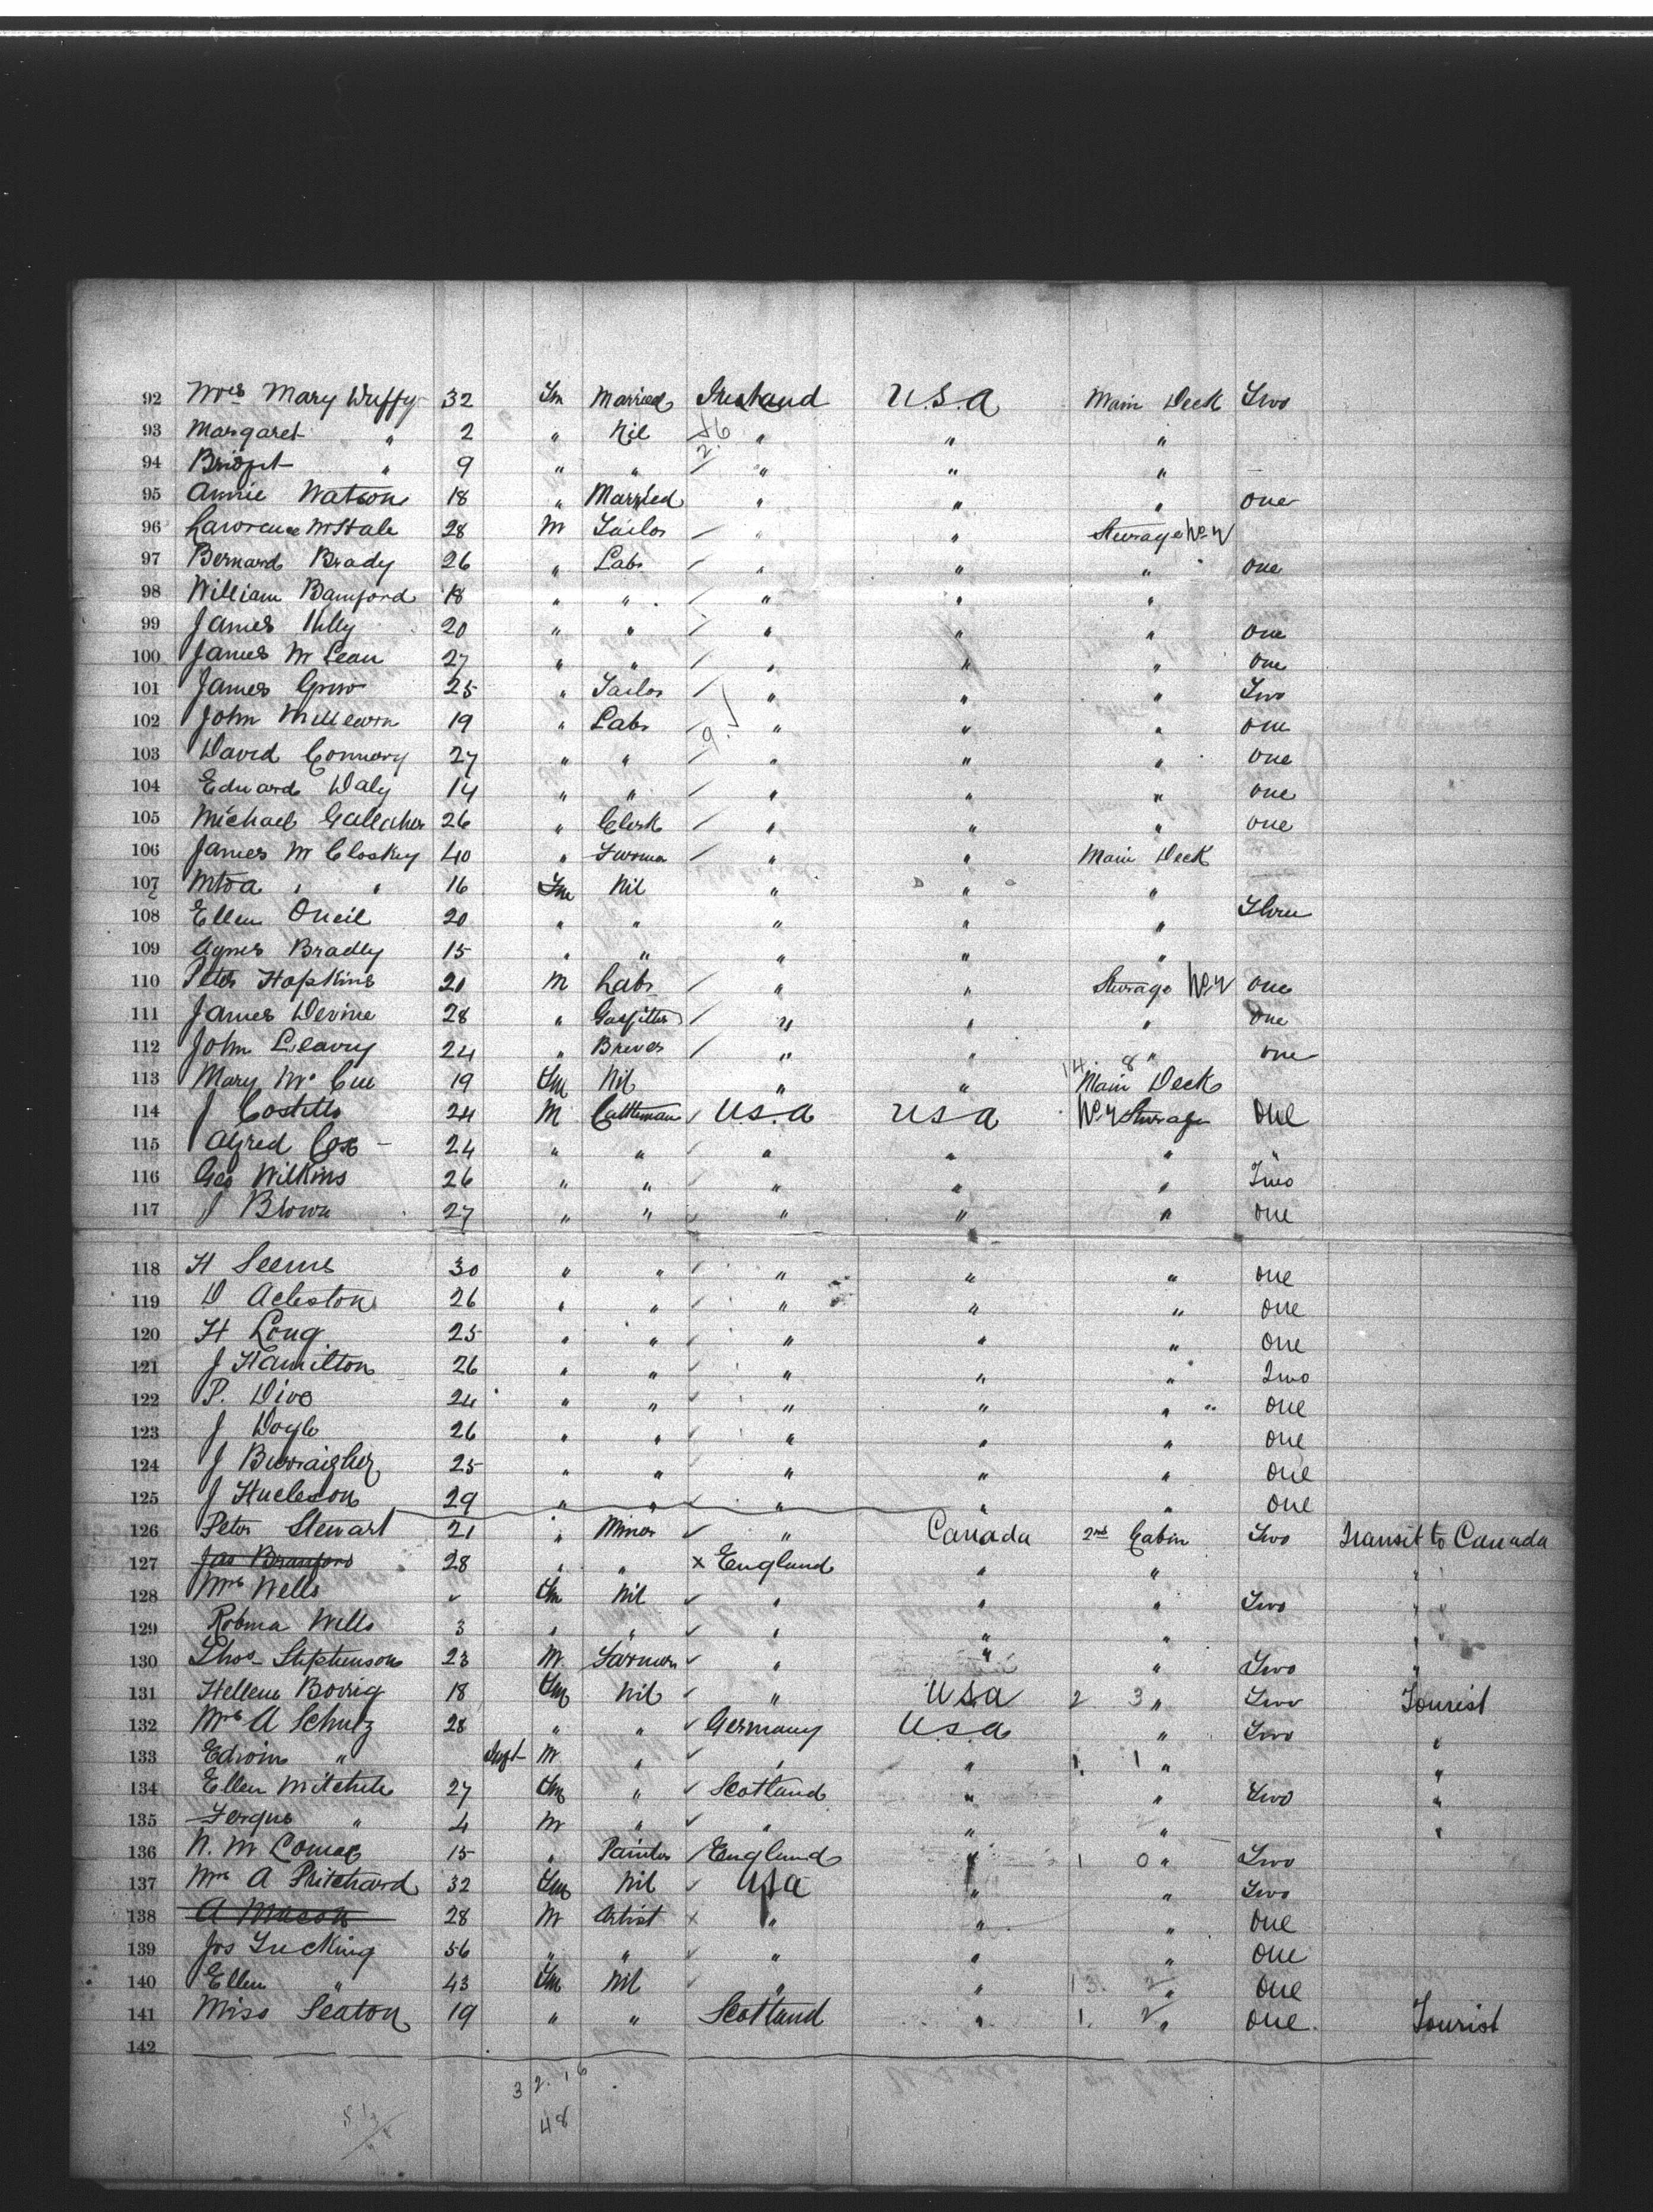 92 Mrs Mary Duffy 32 Fm Married Ireland U.S.A Main Deck Two
93 Margaret " 2 " Nil " " "
94 Bridget " 9 " " " " "
95 Annie Watson 18 " Married " " " one
96 Lawrence McHale 28 M Tailor " " Steerage No 4
97 Bernard Brady 26 " Labr " " " one
98 William Bamford 18 " " " " "
99 James Kelly 20 " " " " " one
100 James McLean 27 " " " " " one
101 James Grew 25 " Tailor " " " Two
102 John 19 " Labr " " " one
103 David Connory 27 " " " " " one
104 Edward Daly 14 " " " " " one
105 Michael Gallagher 26 " Clerk " " " one
106 James McCloskey 40 " " " Main Deck
107 " 16 Fm Nil " " "
108 Ellen Oneil 20 " " " " " Three
109 Agnes Bradly 15 " " " " "
110 Peter Hopkins 20 M Labr " " Steerage No 4 one
111 James Devine 28 " Gasfitter " " " one
112 John Leavy 24 " Brewer " " " one
113 Mary McCue 19 Fm Nil " " Main Deck
114 J Costello 24 M Cattleman U.S.A USA No 4 Steerage one
115 Alfred Cox 24 " " " " " "
116 Geo Wilkins 26 " " " " " Two
117 J Brown 27 " " " " " one
118 H Seems 30 " " " " " one
119 D Acleston 26 " " " " " one
120 H Long 25 " " " " " one
121 J Hamilton 26 " " " " " Two
122 P. 24 " " " " " one
123 J Doyle 26 " " " " " one
124 J 25 " " " " " one
125 J 29 " " " " " one
126 Peter Stewart 21 " Miner " Canada 2nd Cabin Two Transit to Canada
127 Jas Branford 28 " " x England " " "
128 Mrs Wells Fm Nil " " " Two "
129 Robina Wells 3 " " " " " "
130 Thos Stephenson 23 M Farmer " " " Two "
131 Hellene 18 Fm Nil " USA 2 3 " Two Tourist
132 Mrs A Schulz 28 " " Germany USA " Two "
133 Edwin " Inft M " " " 1 1 " "
134 Ellen Mitchell 27 Fm " Scotland " " Two "
135 Fergus " 4 M " " " " "
136 15 " Painter England " 1 0 " Two
137 Mrs A Pritchard 32 Fm Nil USA " " Two
138 A Macon 28 M Artist x " " " one
139 Jos Lucking 56 " " " " " one
140 Ellen " 43 Fm Nil " " 13 2 " one
141 Miss Seaton 19 " " Scotland " 1. 2 " one Tourist
142
3 2. 16
48